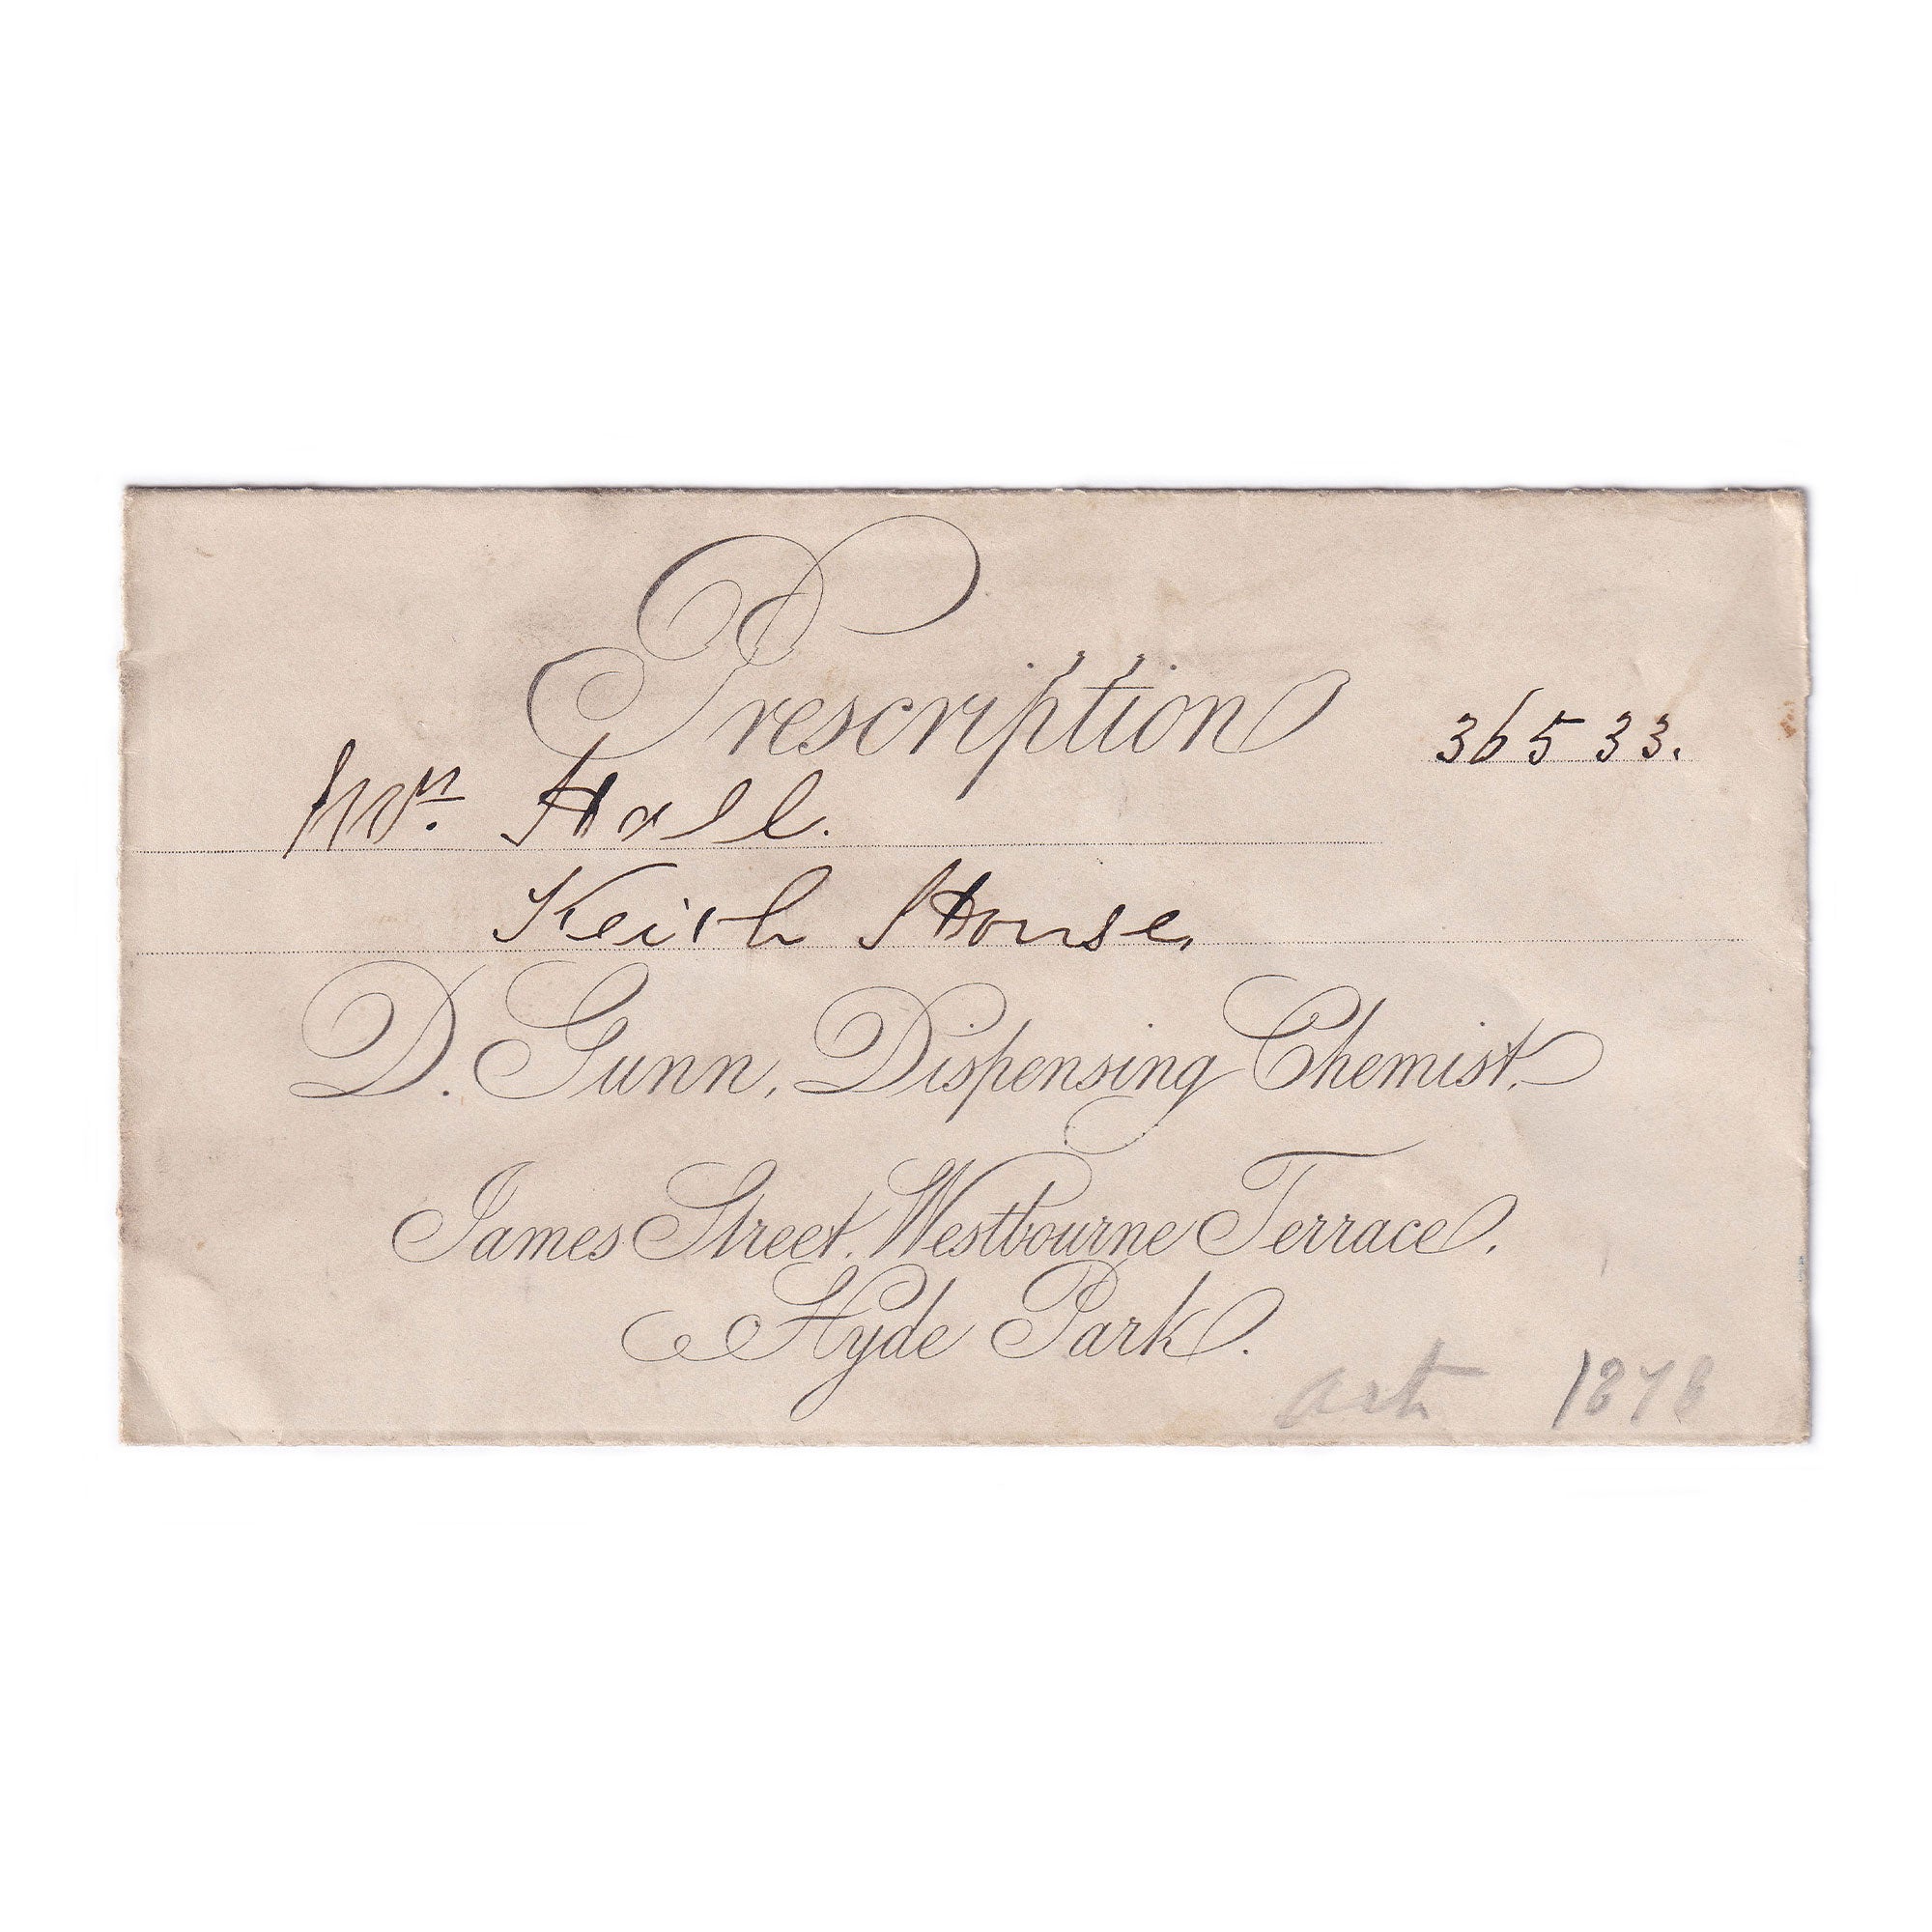 Prescription
36533.
Mrs. Hall.
Keith House,
D. Gunn, Dispensing Chemist,
James Street, Westbourne Terrace,
Hyde Park.
1878